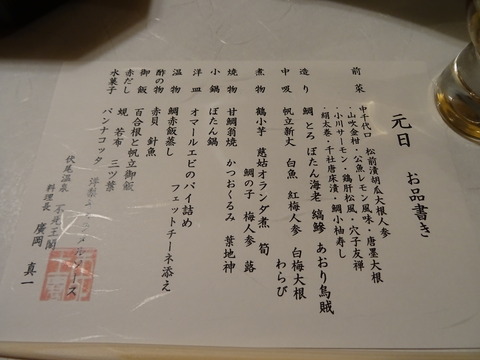 元日　お品書き
前菜　中千代口　松前漬胡瓜大根人参
・山吹金柑・公魚レモン風味・唐墨大根
・小川サーモン・鶏肝松風・穴子友禅
・絹太巻・千社唐床漬・鯛小柚寿し
造り　鯛　とろ　ぼたん海老　縞鯵　あおり烏賊
中吸　帆立新丈　白魚　紅梅人参　白梅大根
わらび
煮物　鶴小芋　慈姑オランダ煮　筍
鯛の子　梅人参　蕗
焼物　甘鯛翁焼　かつおくるみ　葉地神
小鍋　ぼたん鍋
洋皿　オマールエビのパイ詰め
フェットチーネ添え
温物　鯛赤飯蒸し
酢の物　赤貝　針魚
御飯　百合根と帆立御飯
赤だし　蜆　若布　三ツ葉
水菓子　パンナコッタ　洋梨
ソース
伏尾温泉　不死王閣
料理長　廣岡　真一